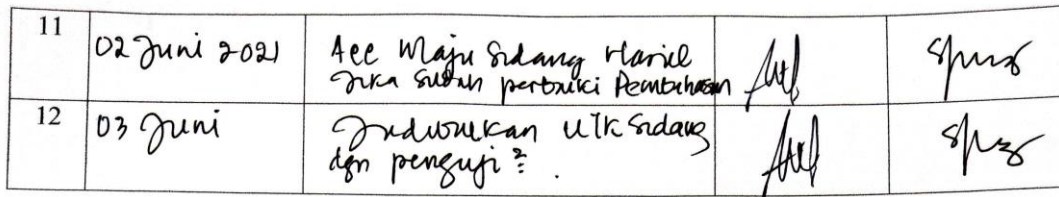 11
02 Juni 2021
Acc Maju Sidang Hasil
Jika Sudah perbaiki Pembahasan
12
03 Juni
Jadwalkan utk Sidang
dgn penguji²